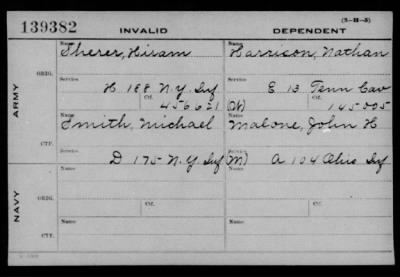 (3-H-5)
139382 INVALID DEPENDENT
Name Name
Sherer, Hiram Harrison, Nathan
ORIG.
Service Service
H 188 N.Y. Inf E 13 Tenn Cav
Ctf. Ctf.
456621 (W) 145005
ARMY
Name Name
Smith, Michael Malone, John H
CTF.
Service Service
D 175 N.Y. Inf (M) A 104 Ohio Inf
NAVY
Name Ctf. Name Ctf.
ORIG.
Name Name
CTF.